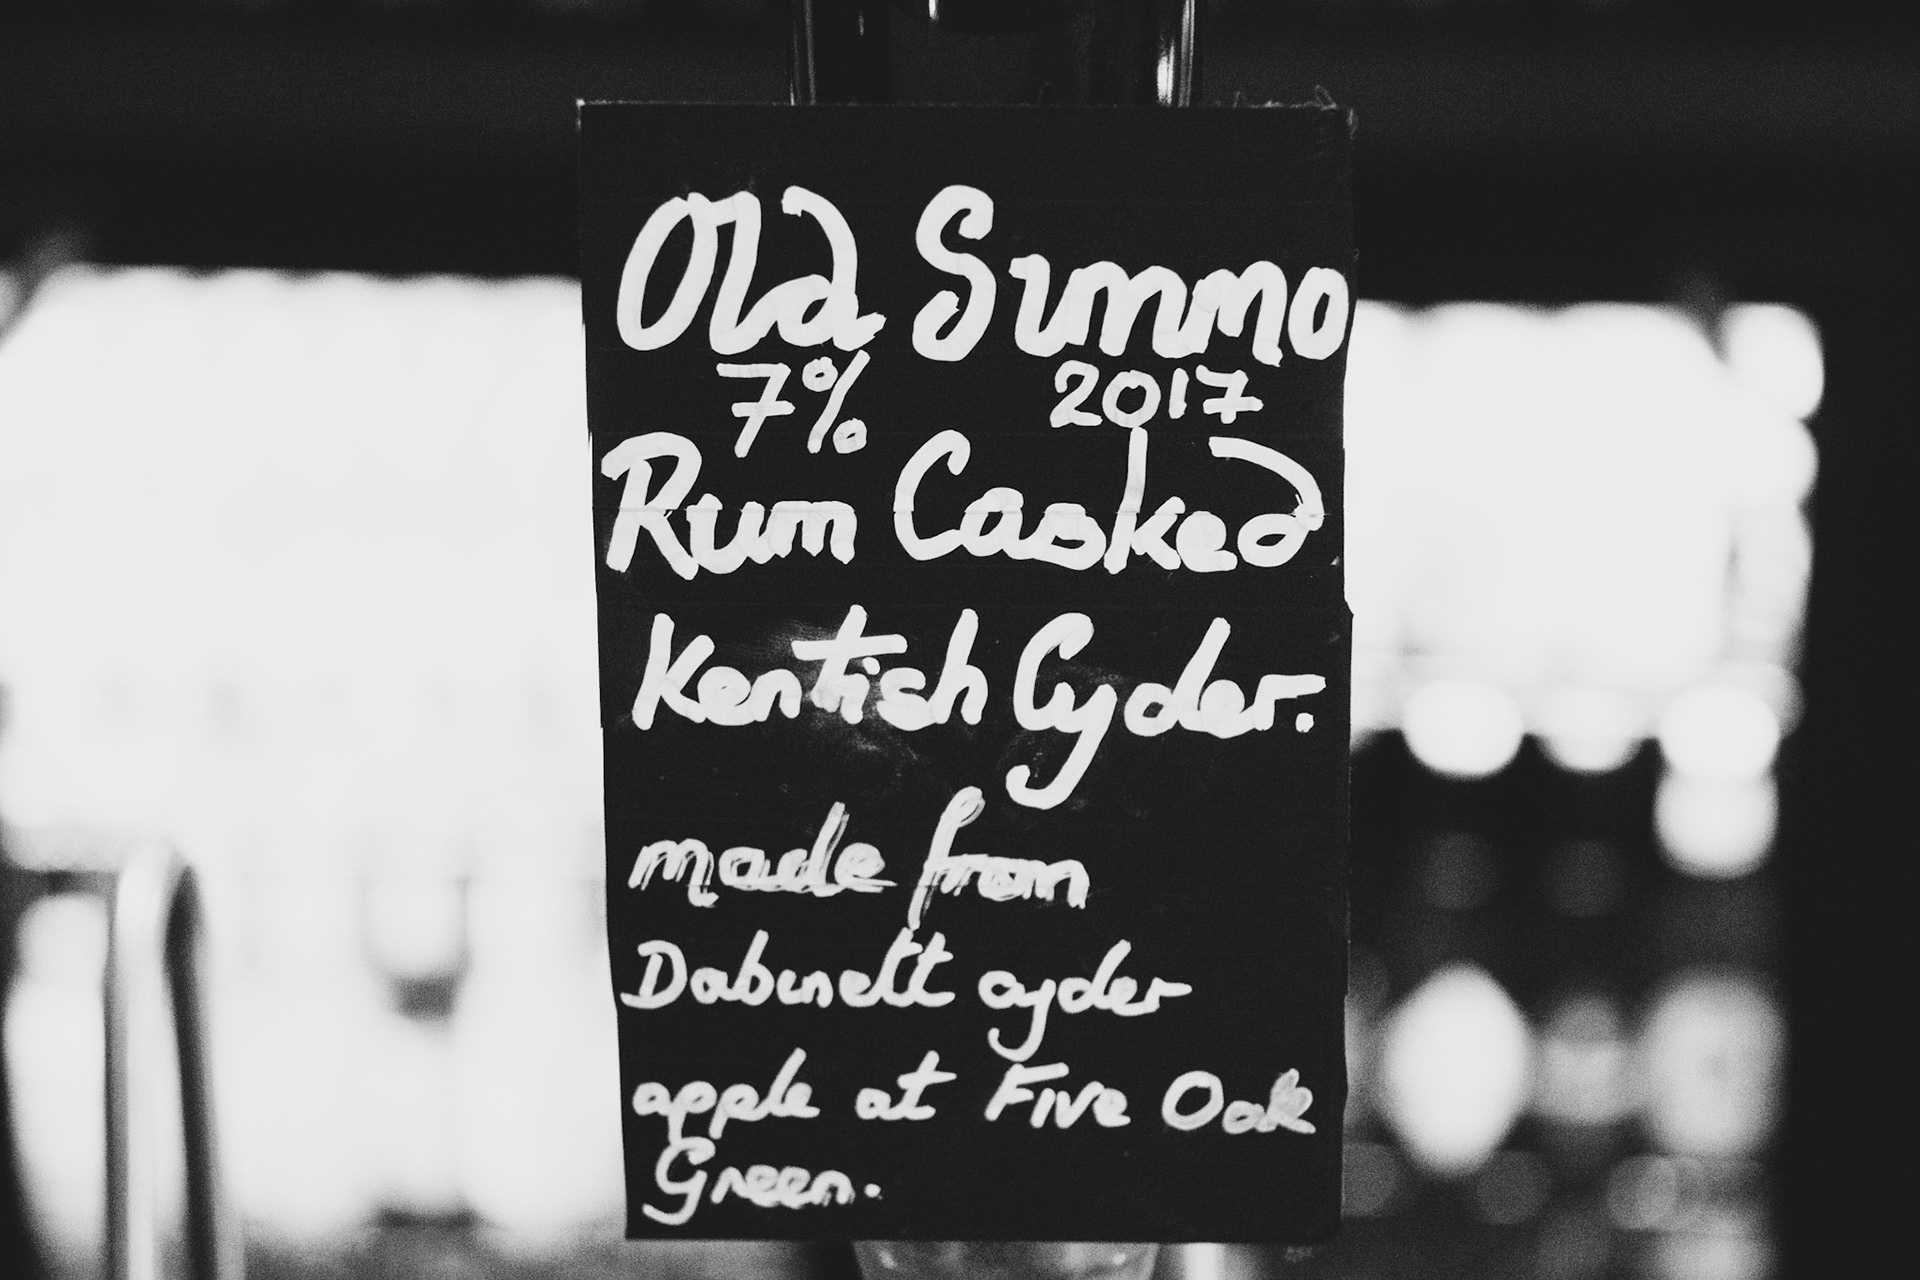 Old Summo
7% 2017
Rum Casked
Kentish Cyder.
made from
Dabinett cyder
apple at Five Oak
Green.